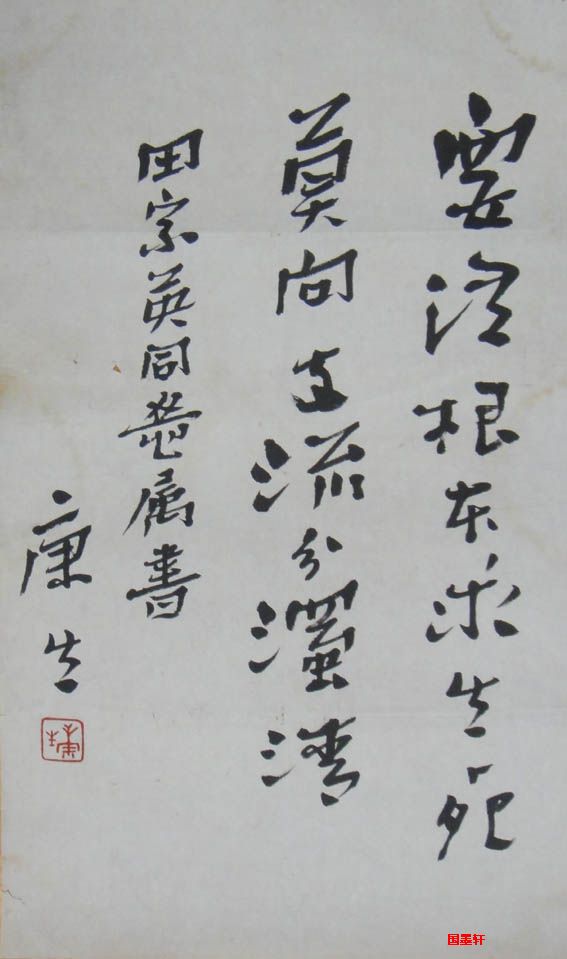 要從根本求生死
莫向支流分濁清
田家英同志属書
康生
国墨轩